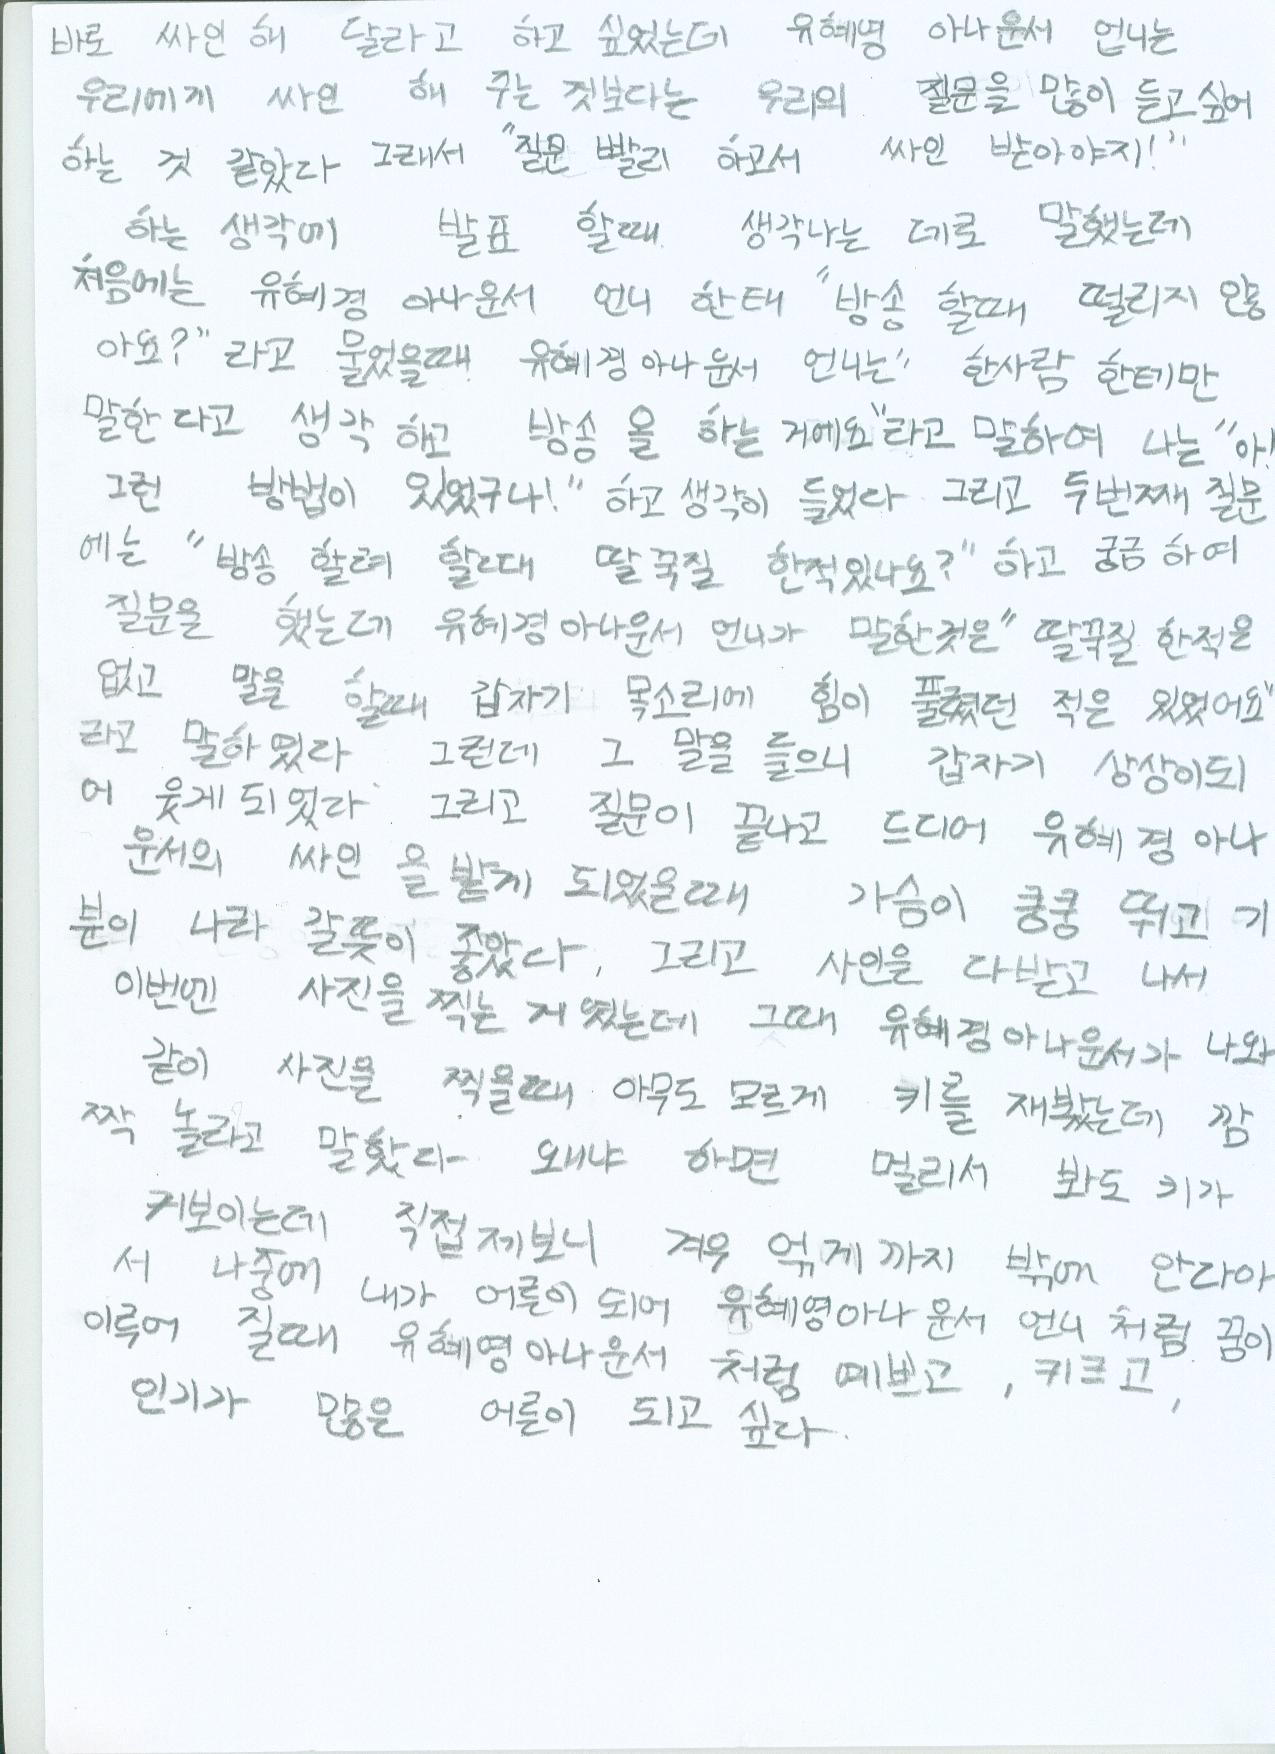 바로 싸인 해 달라고 하고 싶었는데 유혜명 아나운서 언니는
우리에게 싸인 해 주는 것보다는 우리의 질문을 많이 듣고 싶어
하는 것 같았다 그래서 "질문 빨리 하고서 싸인 받아야지!"
하는 생각에 발표 할때 생각나는 데로 말했는데
처음에는 유혜경 아나운서 언니 한태 "방송 할때 떨리지 안흥
아요?"라고 물었을때 유혜경 아나운서 언니는" 한사람 한테만
말한 다고 생각 하고 방송 을 하는 거에요"라고 말하여 나는 "아!
그런 방법이 있었구나!" 하고 생각이 들었다 그리고 두번째 질문
에는 "방송 할려 할때 딸꾹질 한적있나요?" 하고 궁금 하여
질문을 했는데 유혜경 아나운서 언니가 말한것은" 딸꾹질 한적은
없고 말을 할때 갑자기 목소리에 힘이 풀렸던 적은 있었어요"
라고 말하였다 그런데 그 말을 들으니 갑자기 상상이되
어 웃게 되었다 그리고 질문이 끝나고 드디어 유혜경 아나
운서의 싸인 을 받게 되었을때 가슴이 쿵쿵 뛰고 기
분이 나라 갈뜻이 좋았다, 그리고 사인을 다받고 나서
이번엔 사진을 찍는 거였는데 그때 유혜경아나운서가 나와
같이 사진을 찍을때 아무도 모르게 키를 재봤는데 깜
짝 놀라고 말핬다 왜냐 하면 멀리서 봐도 키가
커보이는데 직접 제보니 겨우 얶게 까지 밖에 안다아
서 나중에 내가 어른이 되어 유혜영아나운서 언니 처럼 꿈이
이루어 질때 유혜영아나운서 처럼 예쁘고, 키크고,
인기가 많은 어른이 되고 싶다.